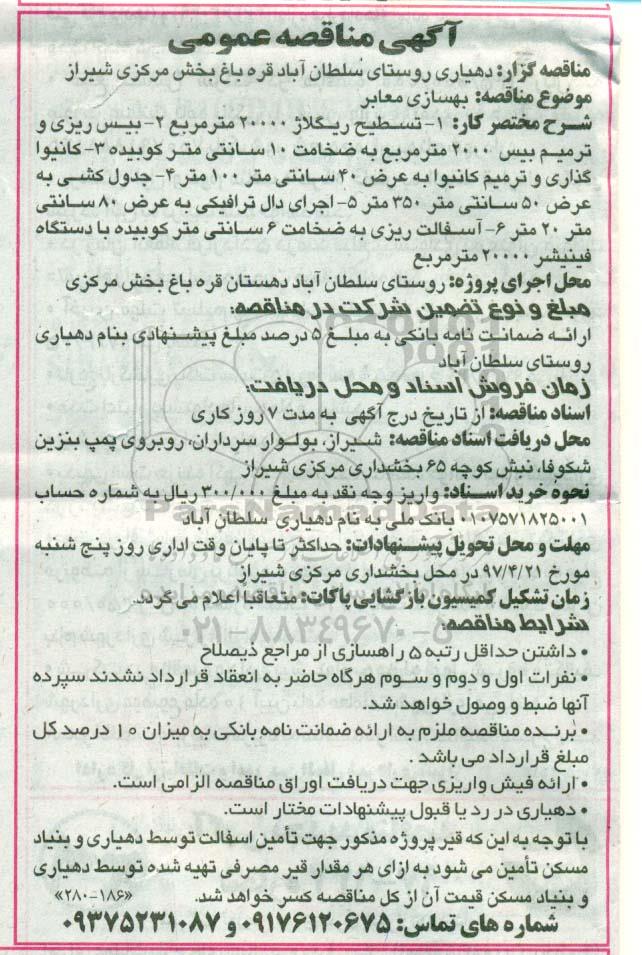 آگهی مناقصه عمومی
مناقصه گزار: دهیاری روستای سلطان آباد قره باغ بخش مرکزی شیراز
موضوع مناقصه: بهسازی معابر
شرح مختصر کار: ۱- تسطیح ریگلاژ ۲۰۰۰۰ مترمربع ۲- بیس ریزی و
ترمیم بیس ۲۰۰۰ مترمربع به ضخامت ۱۰ سانتی متر کوبیده ۳- کانیوا
گذاری و ترمیم کانیوا به عرض ۴۰ سانتی متر ۱۰۰ متر ۴- جدول کشی به
عرض ۵۰ سانتی متر ۳۵۰ متر ۵- اجرای دال ترافیکی به عرض ۸۰ سانتی
متر ۲۰ متر ۶- آسفالت ریزی به ضخامت ۶ سانتی متر کوبیده با دستگاه
فینیشر ۲۰۰۰۰ مترمربع
محل اجرای پروژه: روستای سلطان آباد دهستان قره باغ بخش مرکزی
مبلغ و نوع تضمین شرکت در مناقصه:
ارائه ضمانت نامه بانکی به مبلغ ۵ درصد مبلغ پیشنهادی بنام دهیاری
روستای سلطان آباد
زمان فروش اسناد و محل دریافت:
اسناد مناقصه: از تاریخ درج آگهی به مدت ۷ روز کاری
محل دریافت اسناد مناقصه: شیراز، بولوار سرداران، روبروی پمپ بنزین
شکوفا، نبش کوچه ۶۵ بخشداری مرکزی شیراز
نحوه خرید اسناد: واریز وجه نقد به مبلغ ۳۰۰/۰۰۰ ریال به شماره حساب
۰۱۰۷۵۷۱۸۲۵۰۰۱ بانک ملی به نام دهیاری سلطان آباد
ParsNamadData
مهلت و محل تحویل پیشنهادات: حداکثر تا پایان وقت اداری روز پنج شنبه
مورخ ۹۷/۴/۲۱ در محل بخشداری مرکزی شیراز
زمان تشکیل کمیسیون بازگشایی پاکات: متعاقبا اعلام می گردد
۰۲۱-۸۸۳۴۹۶۷۰-۵
شرایط مناقصه:
• داشتن حداقل رتبه ۵ راهسازی از مراجع ذیصلاح
• نفرات اول و دوم و سوم هرگاه حاضر به انعقاد قرارداد نشدند سپرده
آنها ضبط و وصول خواهد شد.
• برنده مناقصه ملزم به ارائه ضمانت نامه بانکی به میزان ۱۰ درصد کل
مبلغ قرارداد می باشد.
• ارائه فیش واریزی جهت دریافت اوراق مناقصه الزامی است.
• دهیاری در رد یا قبول پیشنهادات مختار است.
با توجه به این که قیر پروژه مذکور جهت تأمین اسفالت توسط دهیاری و بنیاد
مسکن تأمین می شود به ازای هر مقدار قیر مصرفی تهیه شده توسط دهیاری
و بنیاد مسکن قیمت آن از کل مناقصه کسر خواهد شد. «۲۸۰-۱۸۶»
شماره های تماس: ۰۹۱۷۶۱۲۰۶۷۵ و ۰۹۳۷۵۲۳۱۰۸۷